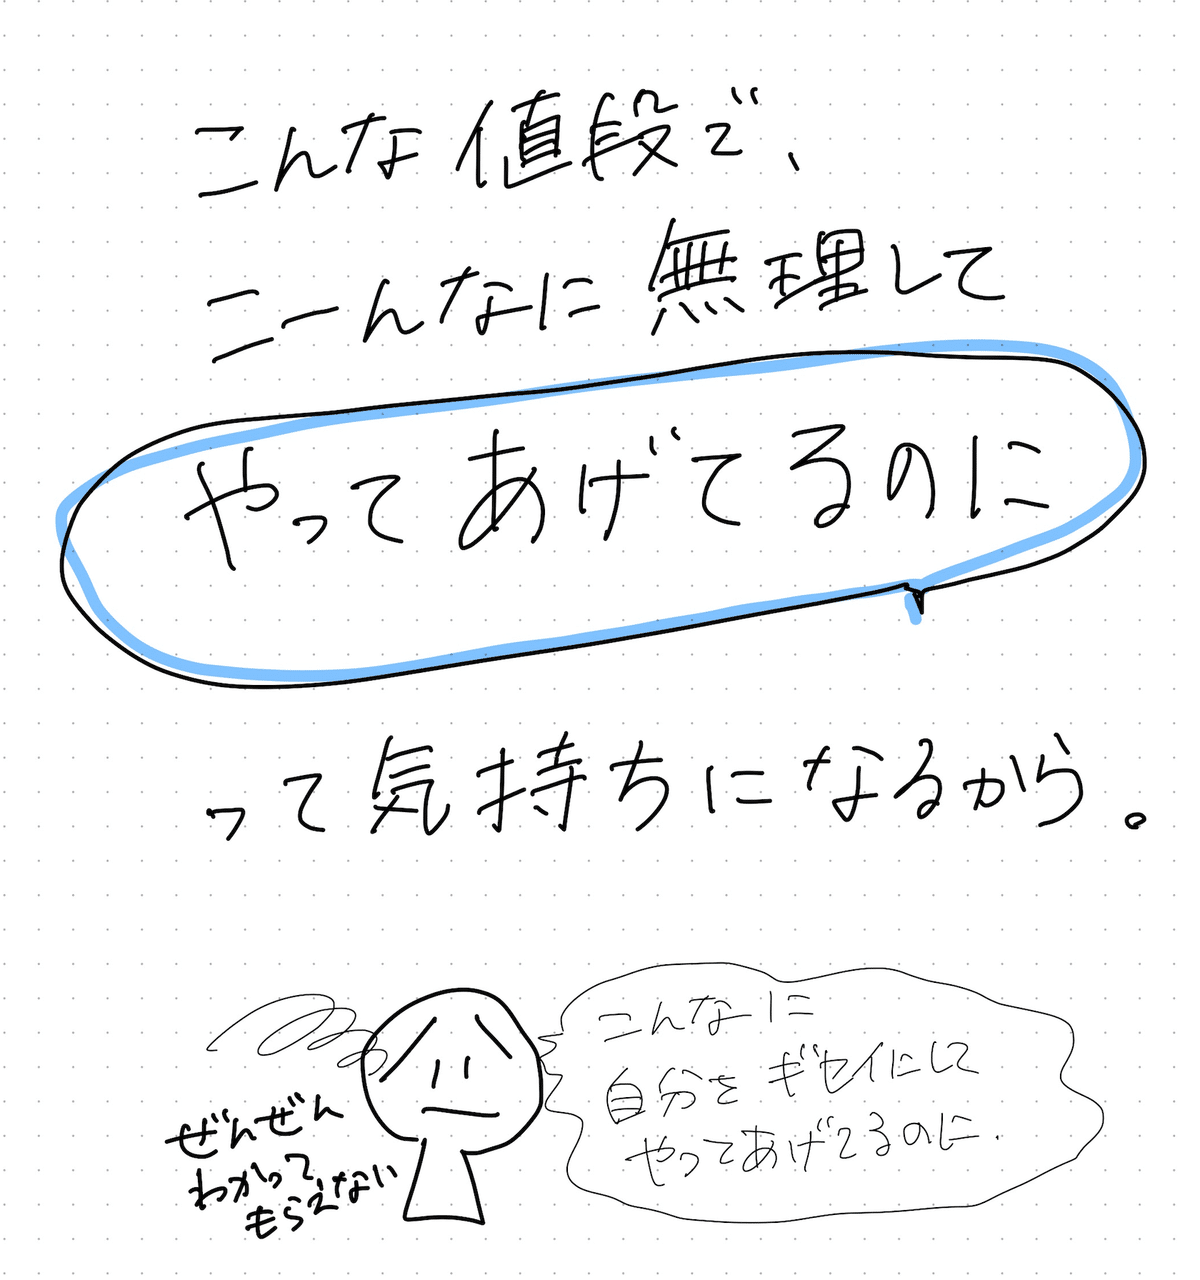 こんな値段で、
こーんなに無理して
やってあげてるのに
って気持ちになるから。
こんなに
自分をギセイにして
やってあげてるのに.
ぜんぜん
わかって
もらえない